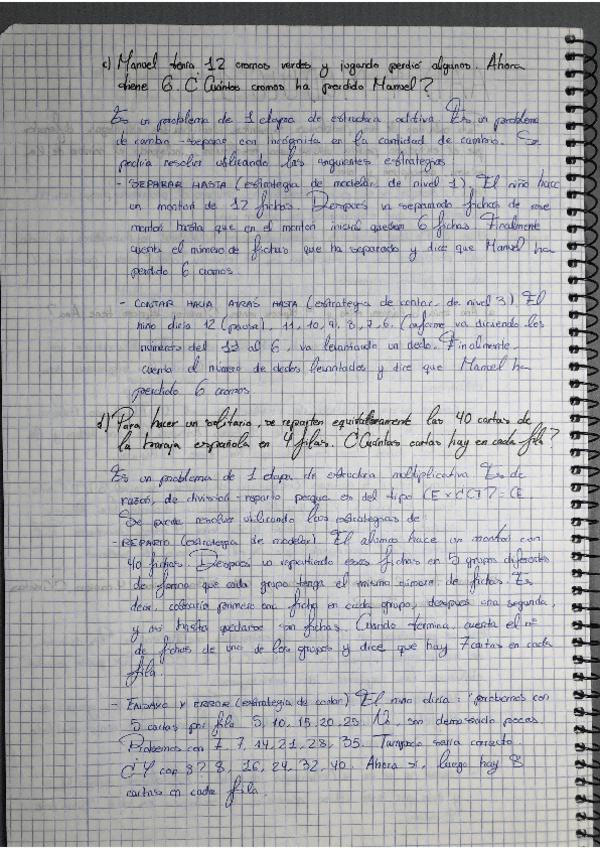 c) Manuel tenía 12 cromos verdes y jugando perdió algunos. Ahora
tiene 6. ¿Cuántos cromos ha perdido Manuel?
Es un problema de 1 etapa de estructura aditiva. Es un problema
de cambio-separar con incógnita en la cantidad de cambio. Se
podría resolver utilizando las siguientes estrategias
- SEPARAR HASTA (estrategia de modelar de nivel 1) El niño hace
un montón de 12 fichas. Después va separando fichas de ese
montón hasta que en el montón inicial quedan 6 fichas. Finalmente
cuenta el número de fichas que ha separado y dice que Manuel ha
perdido 6 cromos.
- CONTAR HACIA ATRÁS HASTA (estrategia de contar, de nivel 3) El
niño diría 12 (pausa), 11, 10, 9, 8, 7, 6. Conforme va diciendo los
números del 12 al 6, va levantando un dedo. Finalmente,
cuenta el número de dedos levantados y dice que Manuel ha
perdido 6 cromos
d) Para hacer un solitario, se reparten equitativamente las 40 cartas de
la baraja española en 4 filas. ¿Cuántas cartas hay en cada fila?
Es un problema de 1 etapa de estructura multiplicativa. Es de
razón, de división-reparto porque es del tipo CE x C/C? = CE
Se puede resolver utilizando las estrategias de
- REPARTO (estrategia de modelar) El alumno hace un montón con
40 fichas. Después va repartiendo esas fichas en 5 grupos diferentes
de forma que cada grupo tenga el mismo número de fichas. Es
decir, colocaría primero una ficha en cada grupo, después una segunda,
y así hasta quedarse sin fichas. Cuando termina, cuenta el nº
de fichas de uno de los grupos y dice que hay 7 cartas en cada
fila.
- ENSAYO Y ERROR (estrategia de contar) El niño diría: "probemos con
5 cartas por fila 5, 10, 15, 20, 25. No, son demasiado pocas.
Probemos con 7, 7, 14, 21, 28, 35. Tampoco sería correcto.
¿Y con 8? 8, 16, 24, 32, 40. Ahora sí, luego hay 8
cartas en cada fila.